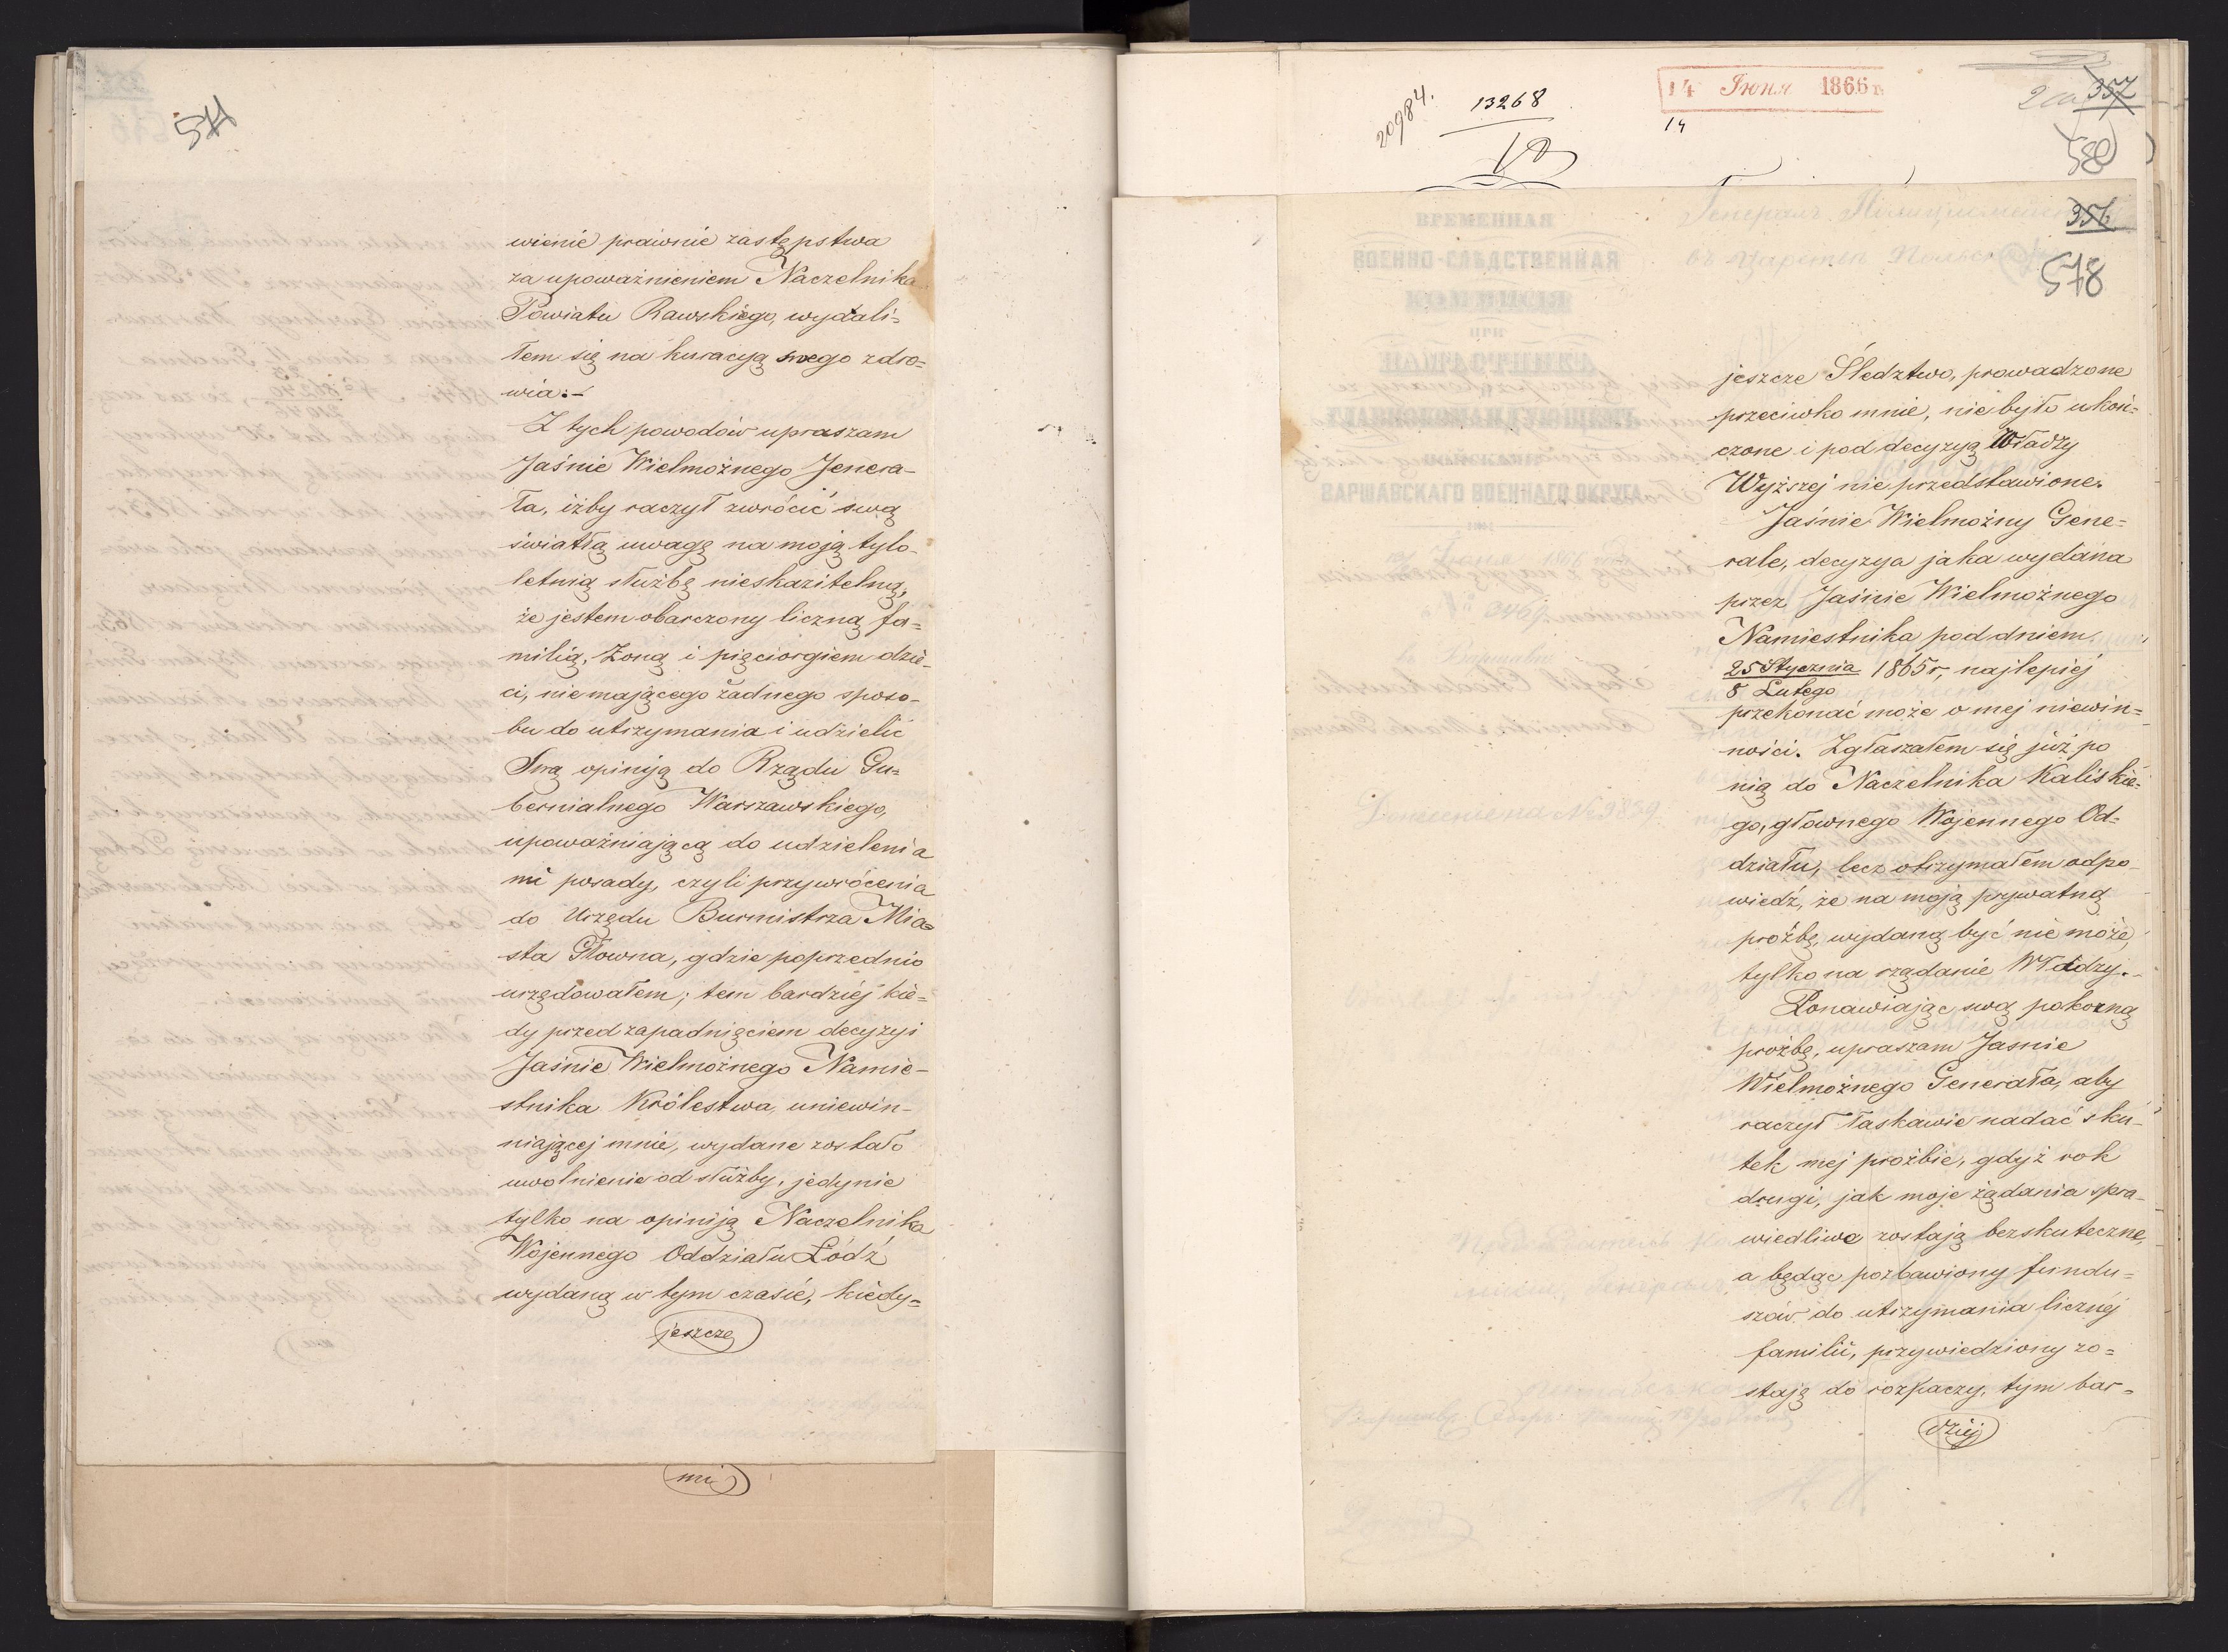 571
wienie prawnie zastępstwa
za upoważnieniem Naczelnika
Powiatu Rawskiego, wydali=
łem się na kuracyą swego zdro=
wia.–
Z tych powodów upraszam
Jaśnie Wielmożnego Jenera-
ła, iżby raczył zwrócić swą
światłą uwagę na moją tylo-
letnią służbę nieskazitelną,
że jestem obarczony liczną fa=
milią, Żoną i pięciorgiem dzie-
ci, niemającego żadnego sposo-
bu do utrzymania i udzielić
Swą opiniją do Rządu Gu=
bernialnego Warszawskiego,
upoważniającą do udzielenia
mi posady, czyli przywrócenia
do Urzędu Burmistrza Mia=
sta Głowna, gdzie poprzednio
urzędowałem; tem bardziej kie=
dy przed zapadnięciem decyzyi
Jaśnie Wielmożnego Namie-
stnika Królestwa, uniewin-
niającej mnie, wydane zostało
uwolnienie od służby, jedynie
tylko na opiniją Naczelnika
Wojennego Oddziału Łódź
wydaną w tym czasie, kiedy=
jeszcze
mi
20984.
13268
14 Іюня 1866 г.
14
357
580
ВРЕМЕННАЯ
ВОЕННО-СЛѢДСТВЕННАЯ
КОММИСІЯ
ПРИ
ВАРШАВСКАГО ВОЕННАГО ОКРУГА
356
578
jeszcze Śledztwo, prowadzone
przeciwko mnie, nie było ukoń=
czone i pod decyzyą Władzy
Wyższej nie przedstawione.
Jaśnie Wielmożny Gene=
rale, decyzya jaka wydana
przez Jaśnie Wielmożnego
Namiestnika pod dniem
25 Stycznia 1865 r, najlepiej
8 Lutego
przekonać może o mej niewin=
ności. Zgłaszałem się już po
nią do Naczelnika Kaliskie=
go, głownego Wojennego Od=
działu, lecz otrzymałem odpo-
wiedź, że na moją prywatną
prożbę, wydaną być nie może,
tylko na rządanie Władzy.–
Ponawiając swą pokorną
prożbę, upraszam Jasnie
Wielmożnego Generała, aby
raczył łaskawie nadać sku-
tek mej prożbie, gdyż rok
drugi, jak moje żądania spra-
wiedliwe zostają bezskuteczne,
a będąc pozbawiony fundu=
szów do utrzymania licznéj
familii, przywiedziony zo=
staję do rozpaczy, tym bar=
dziej